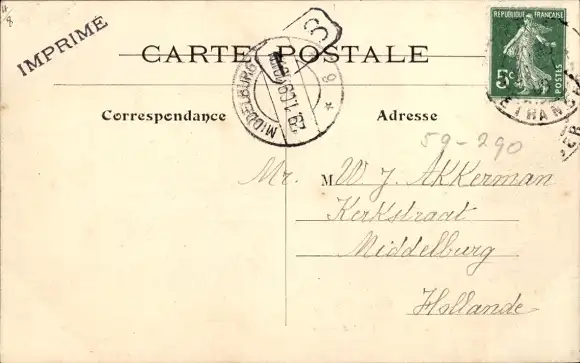 IMPRIMÉ
CARTE POSTALE
RÉPUBLIQUE FRANÇAISE
5c
MIDDELBURG
Correspondance
Adresse
59-290
Mr. M W J. AKKerman
Kerkstraat
Middelburg
Hollande